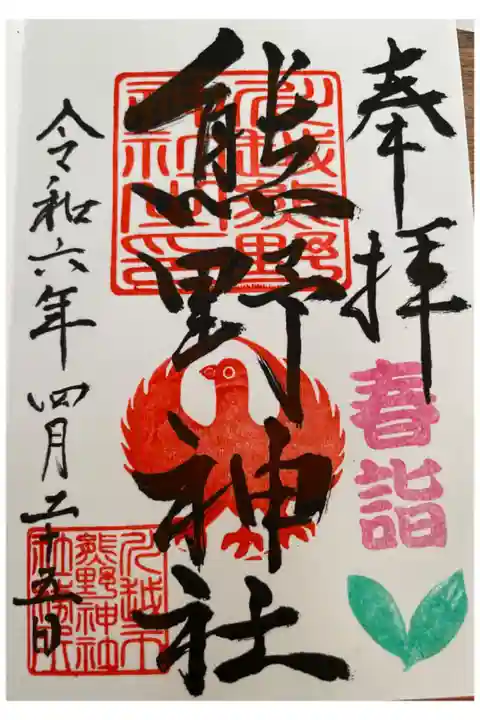 奉拝
春詣
熊野神社
川越熊野
神社之印
令和六年四月二十五日
川越市
熊野神社
社務所